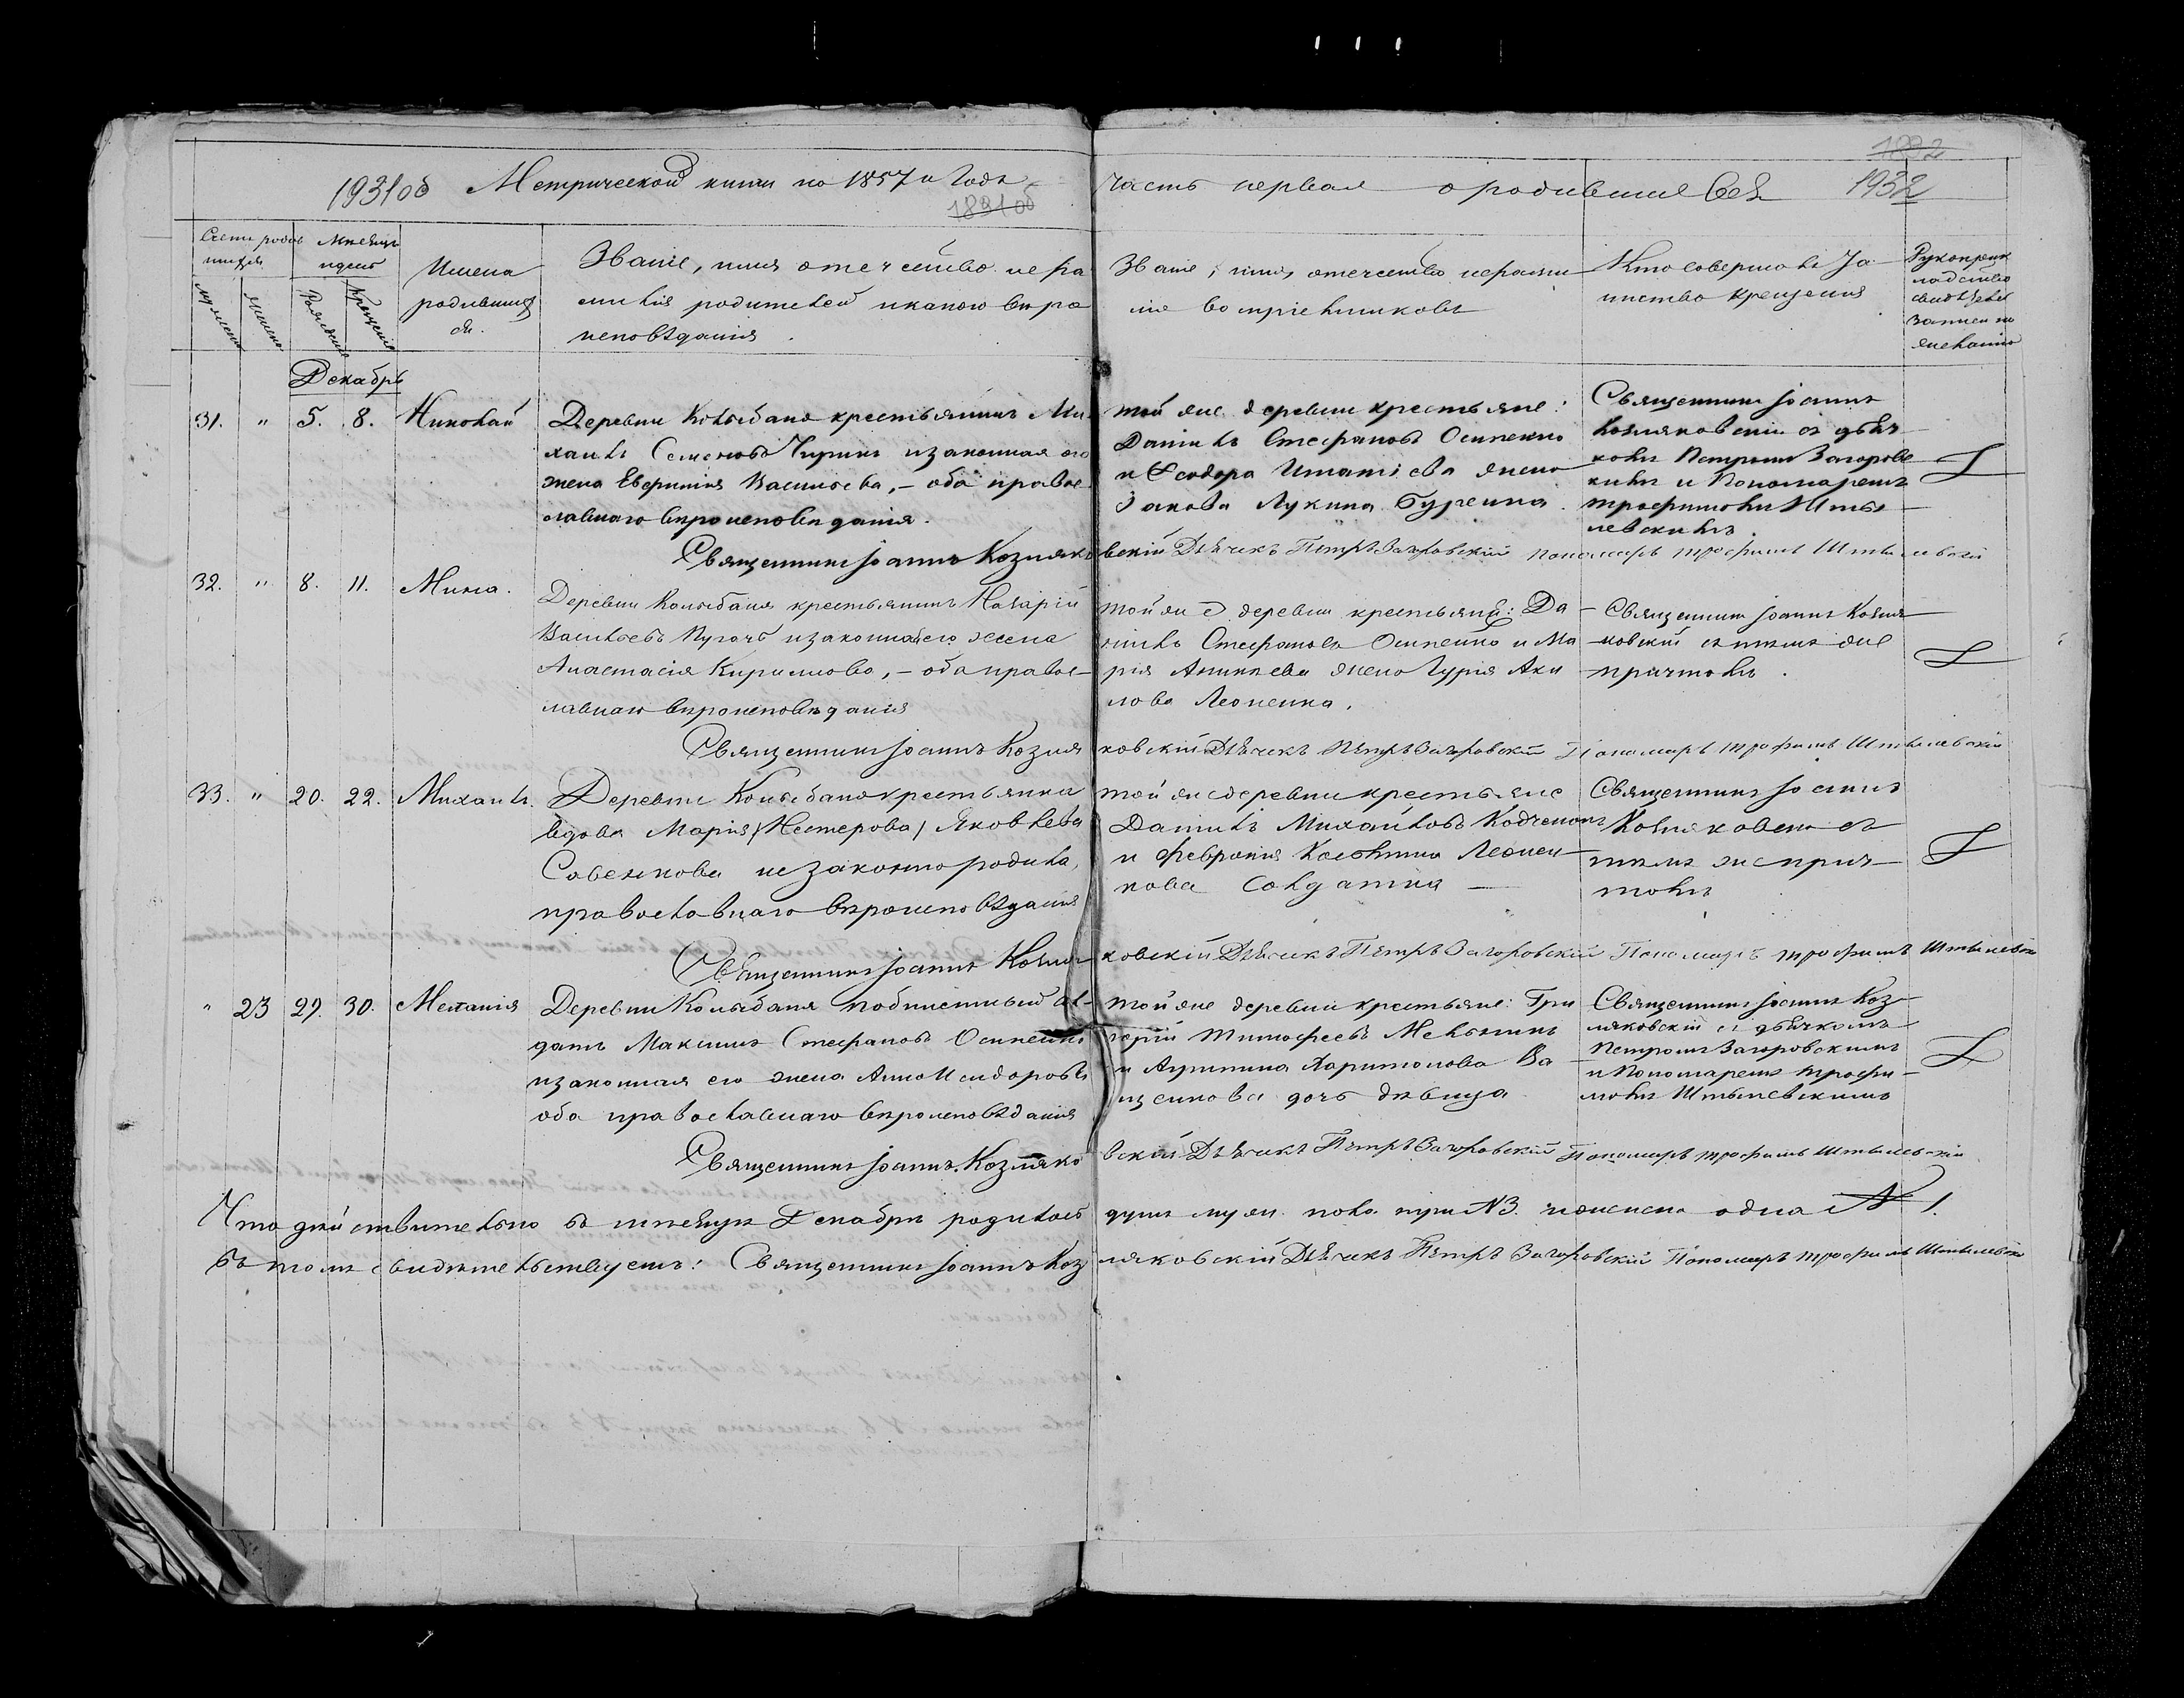 1931об Метрической книги на 1857й Годъ
1891об
часть первая о родившихся
1892
1932
Счетъ родив
шихся
Мѣсяцъ
и день
Имена
родивших
ся.
Званіе, имя отечество и фа
милія родителей и какого вѣро
исповѣданія.
Званіе, имя, отечество и фами
лія воспріемниковъ
Кто совершалъ Та
инство крещенія
Рукоприк
ладство
свидѣтелей
записи по
желанію
мужеска
женска
Рожденія
Крещенія
Декабрь
31. " 5. 8. Николай
Деревни Колыбана крестьянинъ Ми
хаилъ Семеновъ Чиринъ и законная его
жена Евфимія Васильева, – оба правос
лавнаго вѣроисповѣданія.
той же деревни крестьяне:
Даніилъ Стефановъ Осипенко
и Феодора Игнатіева жена
Іакова Лукина Буренка.
Священникъ Іоаннъ
Козляковскій съ дьяч
комъ Петромъ Загоровс
кимъ и Пономаремъ
Трофимомъ Шты
левскимъ
Священникъ Іоаннъ Козляко
вскій Дьячекъ Петръ Загоровскій Пономарь Трофимъ Штылевскій
32. " 8. 11. Мина.
Деревни Колыбаня крестьянинъ Назарій
Васильевъ Пугачъ и законная его жена
Анастасія Кириллова, – оба правос–
лавнаго вѣроисповѣданія
той же деревни крестьяне: Да–
ніилъ Стефановъ Осипенко и Ма
рія Антипева жена Гурія Аки
лова Леоненка.
Священникъ Іоаннъ Козля
ковскій съ тѣмъ же
причтомъ.
Священникъ Іоаннъ Козля
ковскій Дьячекъ Петръ Загоровскій Пономарь Трофимъ Штылевскій
33. " 20. 22. Михаилъ.
Деревни Колыбана крестьянка
вдова Марія /Нестерова/ Яковлева
Савенкова незаконно родила,
православнаго вѣроисповѣданія
той же деревни крестьяне
Даніилъ Михайловъ
и Февронія Леонен
кова Солдатка –
Священникъ Іоаннъ
Козляковскій съ
тѣмъ же прич–
томъ
Священникъ Іоаннъ Козля
ковскій Дьячекъ Петръ Загоровскій Пономарь Трофимъ Штылевскій
" 23 29. 30. Меланія
Деревни Колыбаня побилетный сол–
датъ Максимъ Стефановъ Осипенко
и законная его жена Анна Исидорова
оба православнаго вѣроисповѣданія
той же деревни крестьяне: Гри
горій Тимофеевъ Мельникъ
и Акулина Харитонова
дочь дѣвица
Священникъ Іоаннъ Коз–
ляковскій съ дьячкомъ
Петромъ Загоровскимъ
и Пономаремъ Трофи–
момъ Штылевскимъ
Священникъ Іоаннъ Козляко
вскій Дьячекъ Петръ Загоровскій Пономарь Трофимъ Штылевскій
Что дѣйствительно въ мѣсяцѣ Декабрѣ родилось
душъ муж. пола три №3. и женска одна № 1.
въ томъ свидѣтельствуемъ: Священникъ Іоаннъ Коз
ляковскій Дьячекъ Петръ Загоровскій Пономарь Трофимъ Штылевскій